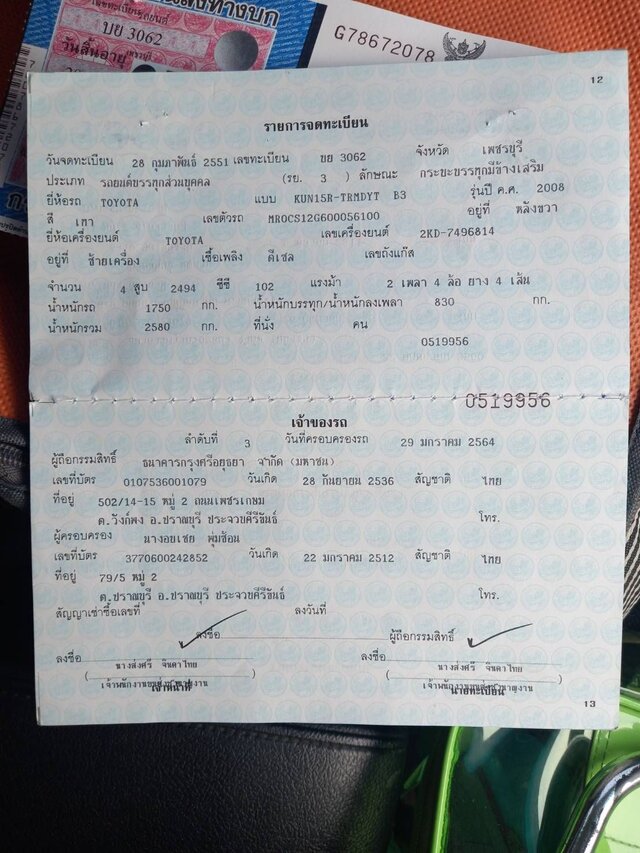 บย 3062
วันสิ้นอายุ
G78672078
12
รายการจดทะเบียน
วันจดทะเบียน 28 กุมภาพันธ์ 2551 เลขทะเบียน บย 3062 จังหวัด เพชรบุรี
ประเภท รถยนต์บรรทุกส่วนบุคคล (รย. 3 ) ลักษณะ กระบะบรรทุกมีข้างเสริม
ยี่ห้อรถ TOYOTA แบบ KUN15R-TRMDYT B3 รุ่นปี ค.ศ. 2008
สี เทา เลขตัวรถ MROCS12G600056100 อยู่ที่ หลังขวา
ยี่ห้อเครื่องยนต์ TOYOTA เลขเครื่องยนต์ 2KD-7496814
อยู่ที่ ซ้ายเครื่อง เชื้อเพลิง ดีเซล เลขถังแก๊ส
จำนวน 4 สูบ 2494 ซีซี 102 แรงม้า 2 เพลา 4 ล้อ ยาง 4 เส้น
น้ำหนักรถ 1750 กก. น้ำหนักบรรทุก/น้ำหนักลงเพลา 830 กก.
น้ำหนักรวม 2580 กก. ที่นั่ง คน
0519956
0519956
เจ้าของรถ
ลำดับที่ 3 วันที่ครอบครองรถ 29 มกราคม 2564
ผู้ถือกรรมสิทธิ์ ธนาคารกรุงศรีอยุธยา จำกัด (มหาชน)
เลขที่บัตร 0107536001079 วันเกิด 28 กันยายน 2536 สัญชาติ ไทย
ที่อยู่ 502/14-15 หมู่ 2 ถนนเพชรเกษม
ต.วังก์พง อ.ปราณบุรี ประจวบคีรีขันธ์ โทร.
ผู้ครอบครอง นางอบเชย พุ่มซ้อน
เลขที่บัตร 3770600242852 วันเกิด 22 มกราคม 2512 สัญชาติ ไทย
ที่อยู่ 79/5 หมู่ 2
ต.ปราณบุรี อ.ปราณบุรี ประจวบคีรีขันธ์ โทร.
สัญญาเช่าซื้อเลขที่ ลงวันที่
ลงชื่อ ผู้ถือกรรมสิทธิ์
ลงชื่อ ลงชื่อ
นางส่งศรี จินดาไทย นางส่งศรี จินดาไทย
เจ้าหน้าที่ นายทะเบียน
13